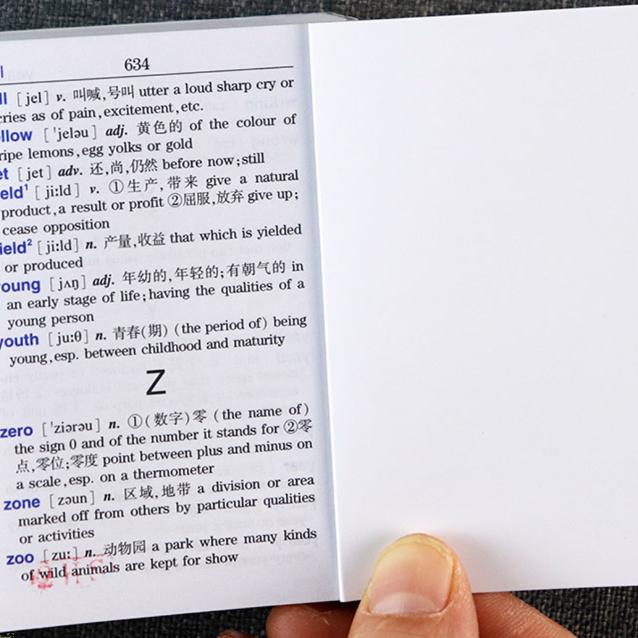 634
ll [jel] v. 叫喊,号叫 utter a loud sharp cry or
cries as of pain,excitement,etc.
llow ['jeləu] adj. 黄色的 of the colour of
ripe lemons,egg yolks or gold
et [jet] adv. 还,尚,仍然 before now;still
eld¹ [ji:ld] v. ①生产,带来 give a natural
product,a result or profit ②屈服,放弃 give up;
cease opposition
ield² [ji:ld] n. 产量,收益 that which is yielded
or produced
oung [jʌŋ] adj. 年幼的,年轻的;有朝气的 in
an early stage of life;having the qualities of a
young person
youth [ju:θ] n. 青春(期) (the period of) being
young,esp. between childhood and maturity
Z
zero ['ziərəu] n. ①(数字)零 (the name of)
the sign 0 and of the number it stands for ②零
点,零位;零度 point between plus and minus on
a scale,esp. on a thermometer
zone [zəun] n. 区域,地带 a division or area
marked off from others by particular qualities
or activities
zoo [zu:] n. 动物园 a park where many kinds
of wild animals are kept for show